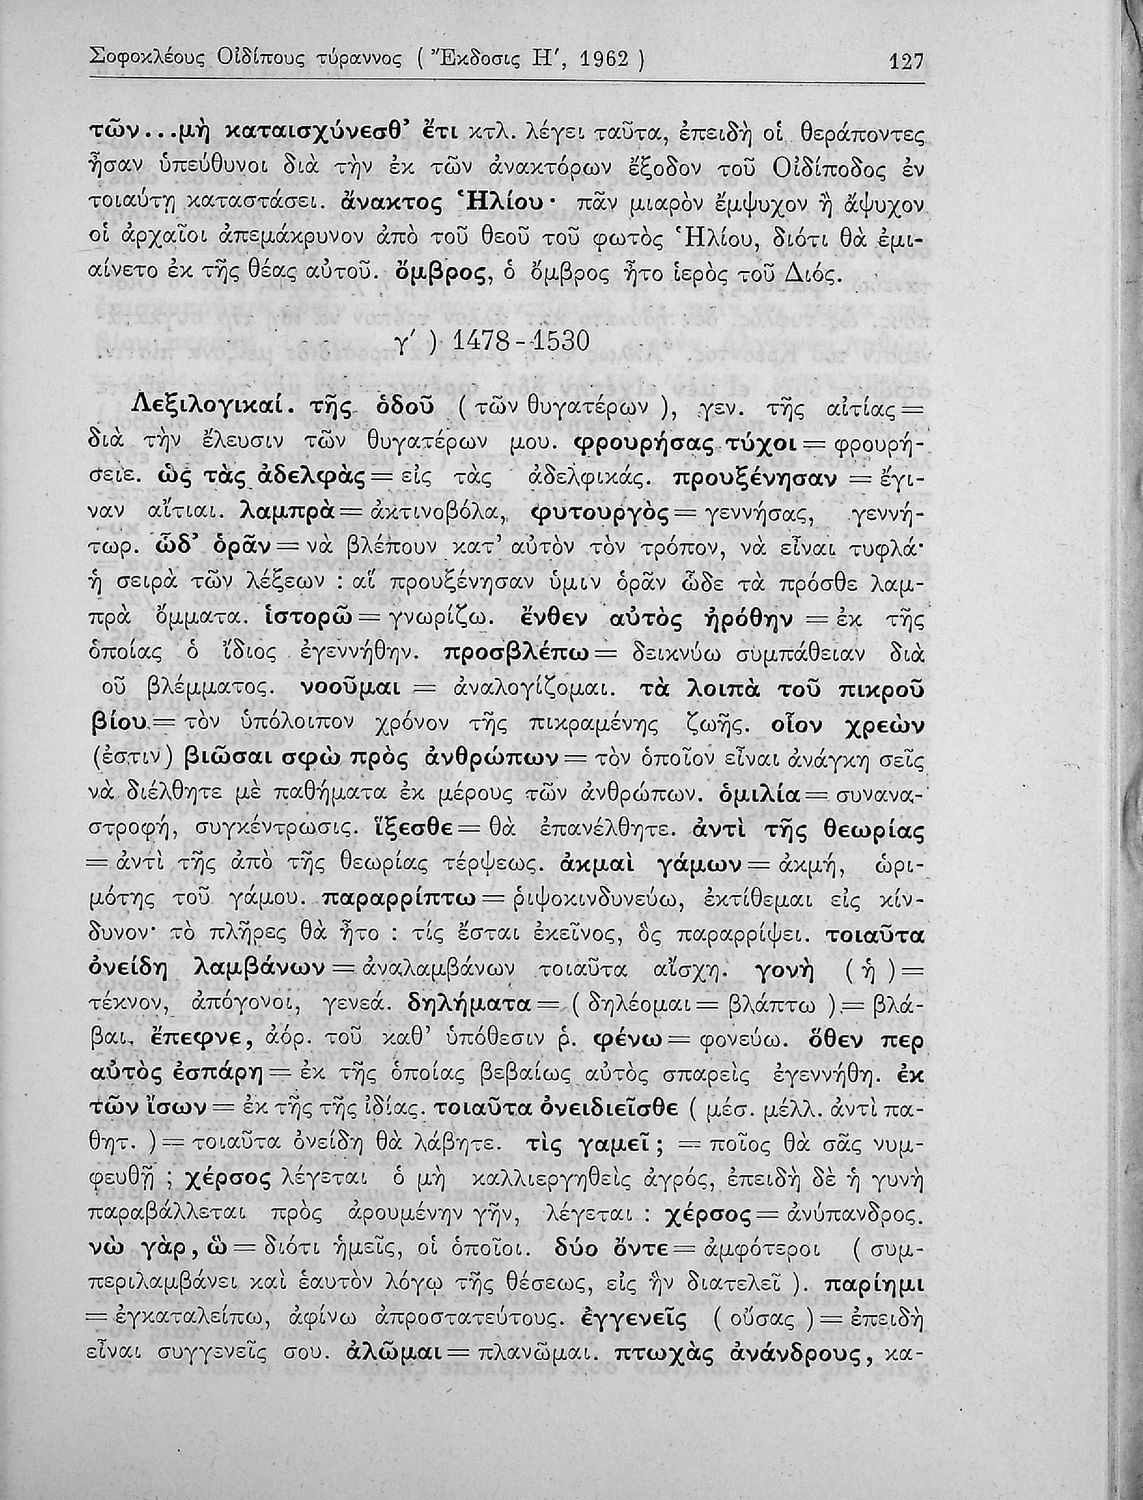 Σοφοκλέους Οἰδίπους τύραννος ( Ἔκδοσις Η′, 1962 ) 127
τῶν...μὴ καταισχύνεσθ’ ἔτι κτλ. λέγει ταῦτα, ἐπειδὴ οἱ θεράποντες
ἦσαν ὑπεύθυνοι διὰ τὴν ἐκ τῶν ἀνακτόρων ἔξοδον τοῦ Οἰδίποδος ἐν
τοιαύτῃ καταστάσει. ἄνακτος Ἡλίου· πᾶν μιαρὸν ἔμψυχον ἢ ἄψυχον
οἱ ἀρχαῖοι ἀπεμάκρυνον ἀπὸ τοῦ θεοῦ τοῦ φωτὸς Ἡλίου, διότι θὰ ἐμι-
αίνετο ἐκ τῆς θέας αὐτοῦ. ὄμβρος, ὁ ὄμβρος ἦτο ἱερὸς τοῦ Διός.
γ′ ) 1478-1530
Λεξιλογικαί. τῆς ὁδοῦ ( τῶν θυγατέρων ), γεν. τῆς αἰτίας =
διὰ τὴν ἔλευσιν τῶν θυγατέρων μου. φρουρήσας τύχοι = φρουρή-
σειε. ὡς τὰς ἀδελφὰς = εἰς τὰς ἀδελφικάς. προυξένησαν = ἔγι-
ναν αἴτιαι. λαμπρὰ = ἀκτινοβόλα, φυτουργὸς = γεννήσας, γεννή-
τωρ. ὧδ’ ὁρᾶν = νὰ βλέπουν κατ’ αὐτὸν τὸν τρόπον, νὰ εἶναι τυφλά·
ἡ σειρὰ τῶν λέξεων : αἳ προυξένησαν ὑμὶν ὁρᾶν ὧδε τὰ πρόσθε λαμ-
πρὰ ὄμματα. ἱστορῶ = γνωρίζω. ἔνθεν αὐτὸς ἠρόθην = ἐκ τῆς
ὁποίας ὁ ἴδιος ἐγεννήθην. προσβλέπω = δεικνύω συμπάθειαν διὰ
οῦ βλέμματος. νοοῦμαι = ἀναλογίζομαι. τὰ λοιπὰ τοῦ πικροῦ
βίου = τὸν ὑπόλοιπον χρόνον τῆς πικραμένης ζωῆς. οἷον χρεὼν
(ἐστιν) βιῶσαι σφὼ πρὸς ἀνθρώπων = τὸν ὁποῖον εἶναι ἀνάγκη σεῖς
νὰ διέλθητε μὲ παθήματα ἐκ μέρους τῶν ἀνθρώπων. ὁμιλία = συνανα-
στροφή, συγκέντρωσις. ἵξεσθε = θὰ ἐπανέλθητε. ἀντὶ τῆς θεωρίας
= ἀντὶ τῆς ἀπὸ τῆς θεωρίας τέρψεως. ἀκμαὶ γάμων = ἀκμή, ὡρι-
μότης τοῦ γάμου. παραρρίπτω = ῥιψοκινδυνεύω, ἐκτίθεμαι εἰς κίν-
δυνον· τὸ πλῆρες θὰ ἦτο : τίς ἔσται ἐκεῖνος, ὃς παραρρίψει. τοιαῦτα
ὀνείδη λαμβάνων = ἀναλαμβάνων τοιαῦτα αἴσχη. γονὴ ( ἡ ) =
τέκνον, ἀπόγονοι, γενεά. δηλήματα = ( δηλέομαι = βλάπτω ) = βλά-
βαι. ἔπεφνε, ἀόρ. τοῦ καθ’ ὑπόθεσιν ῥ. φένω = φονεύω. ὅθεν περ
αὐτὸς ἐσπάρη = ἐκ τῆς ὁποίας βεβαίως αὐτὸς σπαρεὶς ἐγεννήθη. ἐκ
τῶν ἴσων = ἐκ τῆς τῆς ἰδίας. τοιαῦτα ὀνειδιεῖσθε ( μέσ. μέλλ. ἀντὶ πα-
θητ. ) = τοιαῦτα ὀνείδη θὰ λάβητε. τὶς γαμεῖ ; = ποῖος θὰ σᾶς νυμ-
φευθῇ ; χέρσος λέγεται ὁ μὴ καλλιεργηθεὶς ἀγρός, ἐπειδὴ δὲ ἡ γυνὴ
παραβάλλεται πρὸς ἀρουμένην γῆν, λέγεται : χέρσος = ἀνύπανδρος.
νὼ γὰρ, ὢ = διότι ἡμεῖς, οἱ ὁποῖοι. δύο ὄντε = ἀμφότεροι ( συμ-
περιλαμβάνει καὶ ἑαυτὸν λόγῳ τῆς θέσεως, εἰς ἣν διατελεῖ ). παρίημι
= ἐγκαταλείπω, ἀφίνω ἀπροστατεύτους. ἐγγενεῖς ( οὔσας ) = ἐπειδὴ
εἶναι συγγενεῖς σου. ἀλῶμαι = πλανῶμαι. πτωχὰς ἀνάνδρους, κα-